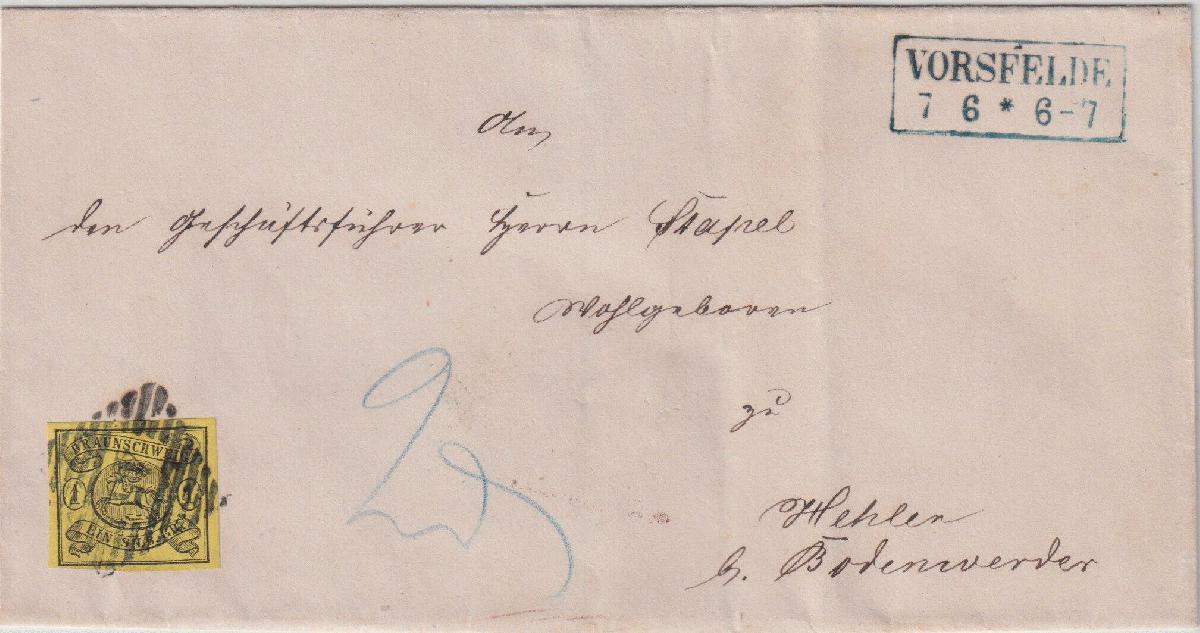 VORSFELDE
7 6 * 6-7
An
den Geschäftsführer Herrn Stapel
Wohlgeboren
zu
Hehlen
b. Bodenwerder
BRAUNSCHWEIG
1 1
EIN SILB. GR.